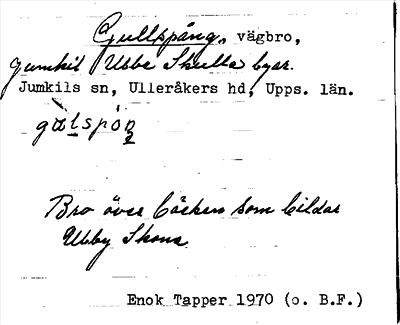 Gullspång, vägbro,
Jumkil Ubbe Skulla byar.
Jumkils sn, Ulleråkers hd, Upps. län.
gälspón
Bro över bäcken som bildar
Ubby
Enok Tapper 1970 (o. B.F.)